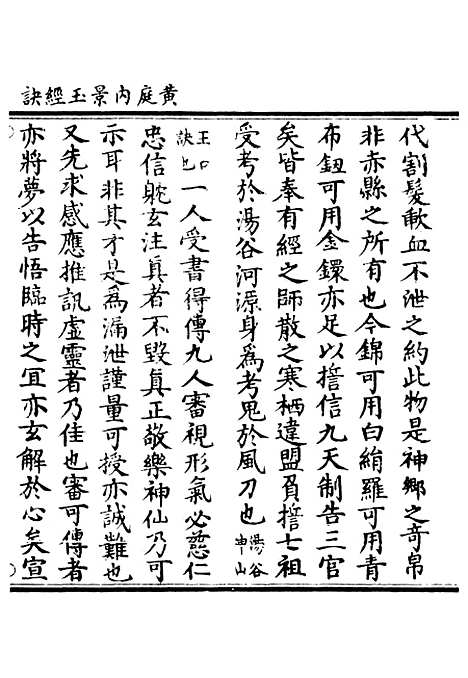 黄庭內景玉經訣
代割髮歃血不泄之約此物是神鄉之奇帛
非赤縣之所有也今錦可用白絹羅可用青
布鈕可用金鐶亦足以擔信九天制告三官
矣皆奉有經之師散之寒栖違盟負擔七祖
受考於湯谷河源身為考鬼於風刀也湯谷申山
王口訣也一人受書得傳九人審視形氣必慈仁
忠信躭玄注真者不毀真正敬樂神仙乃可
示耳非其才是為漏泄謹量可授亦誠難也
又先求感應推訊虛靈者乃佳也審可傳者
亦將夢以告悟臨時之宜亦玄解於心矣宣